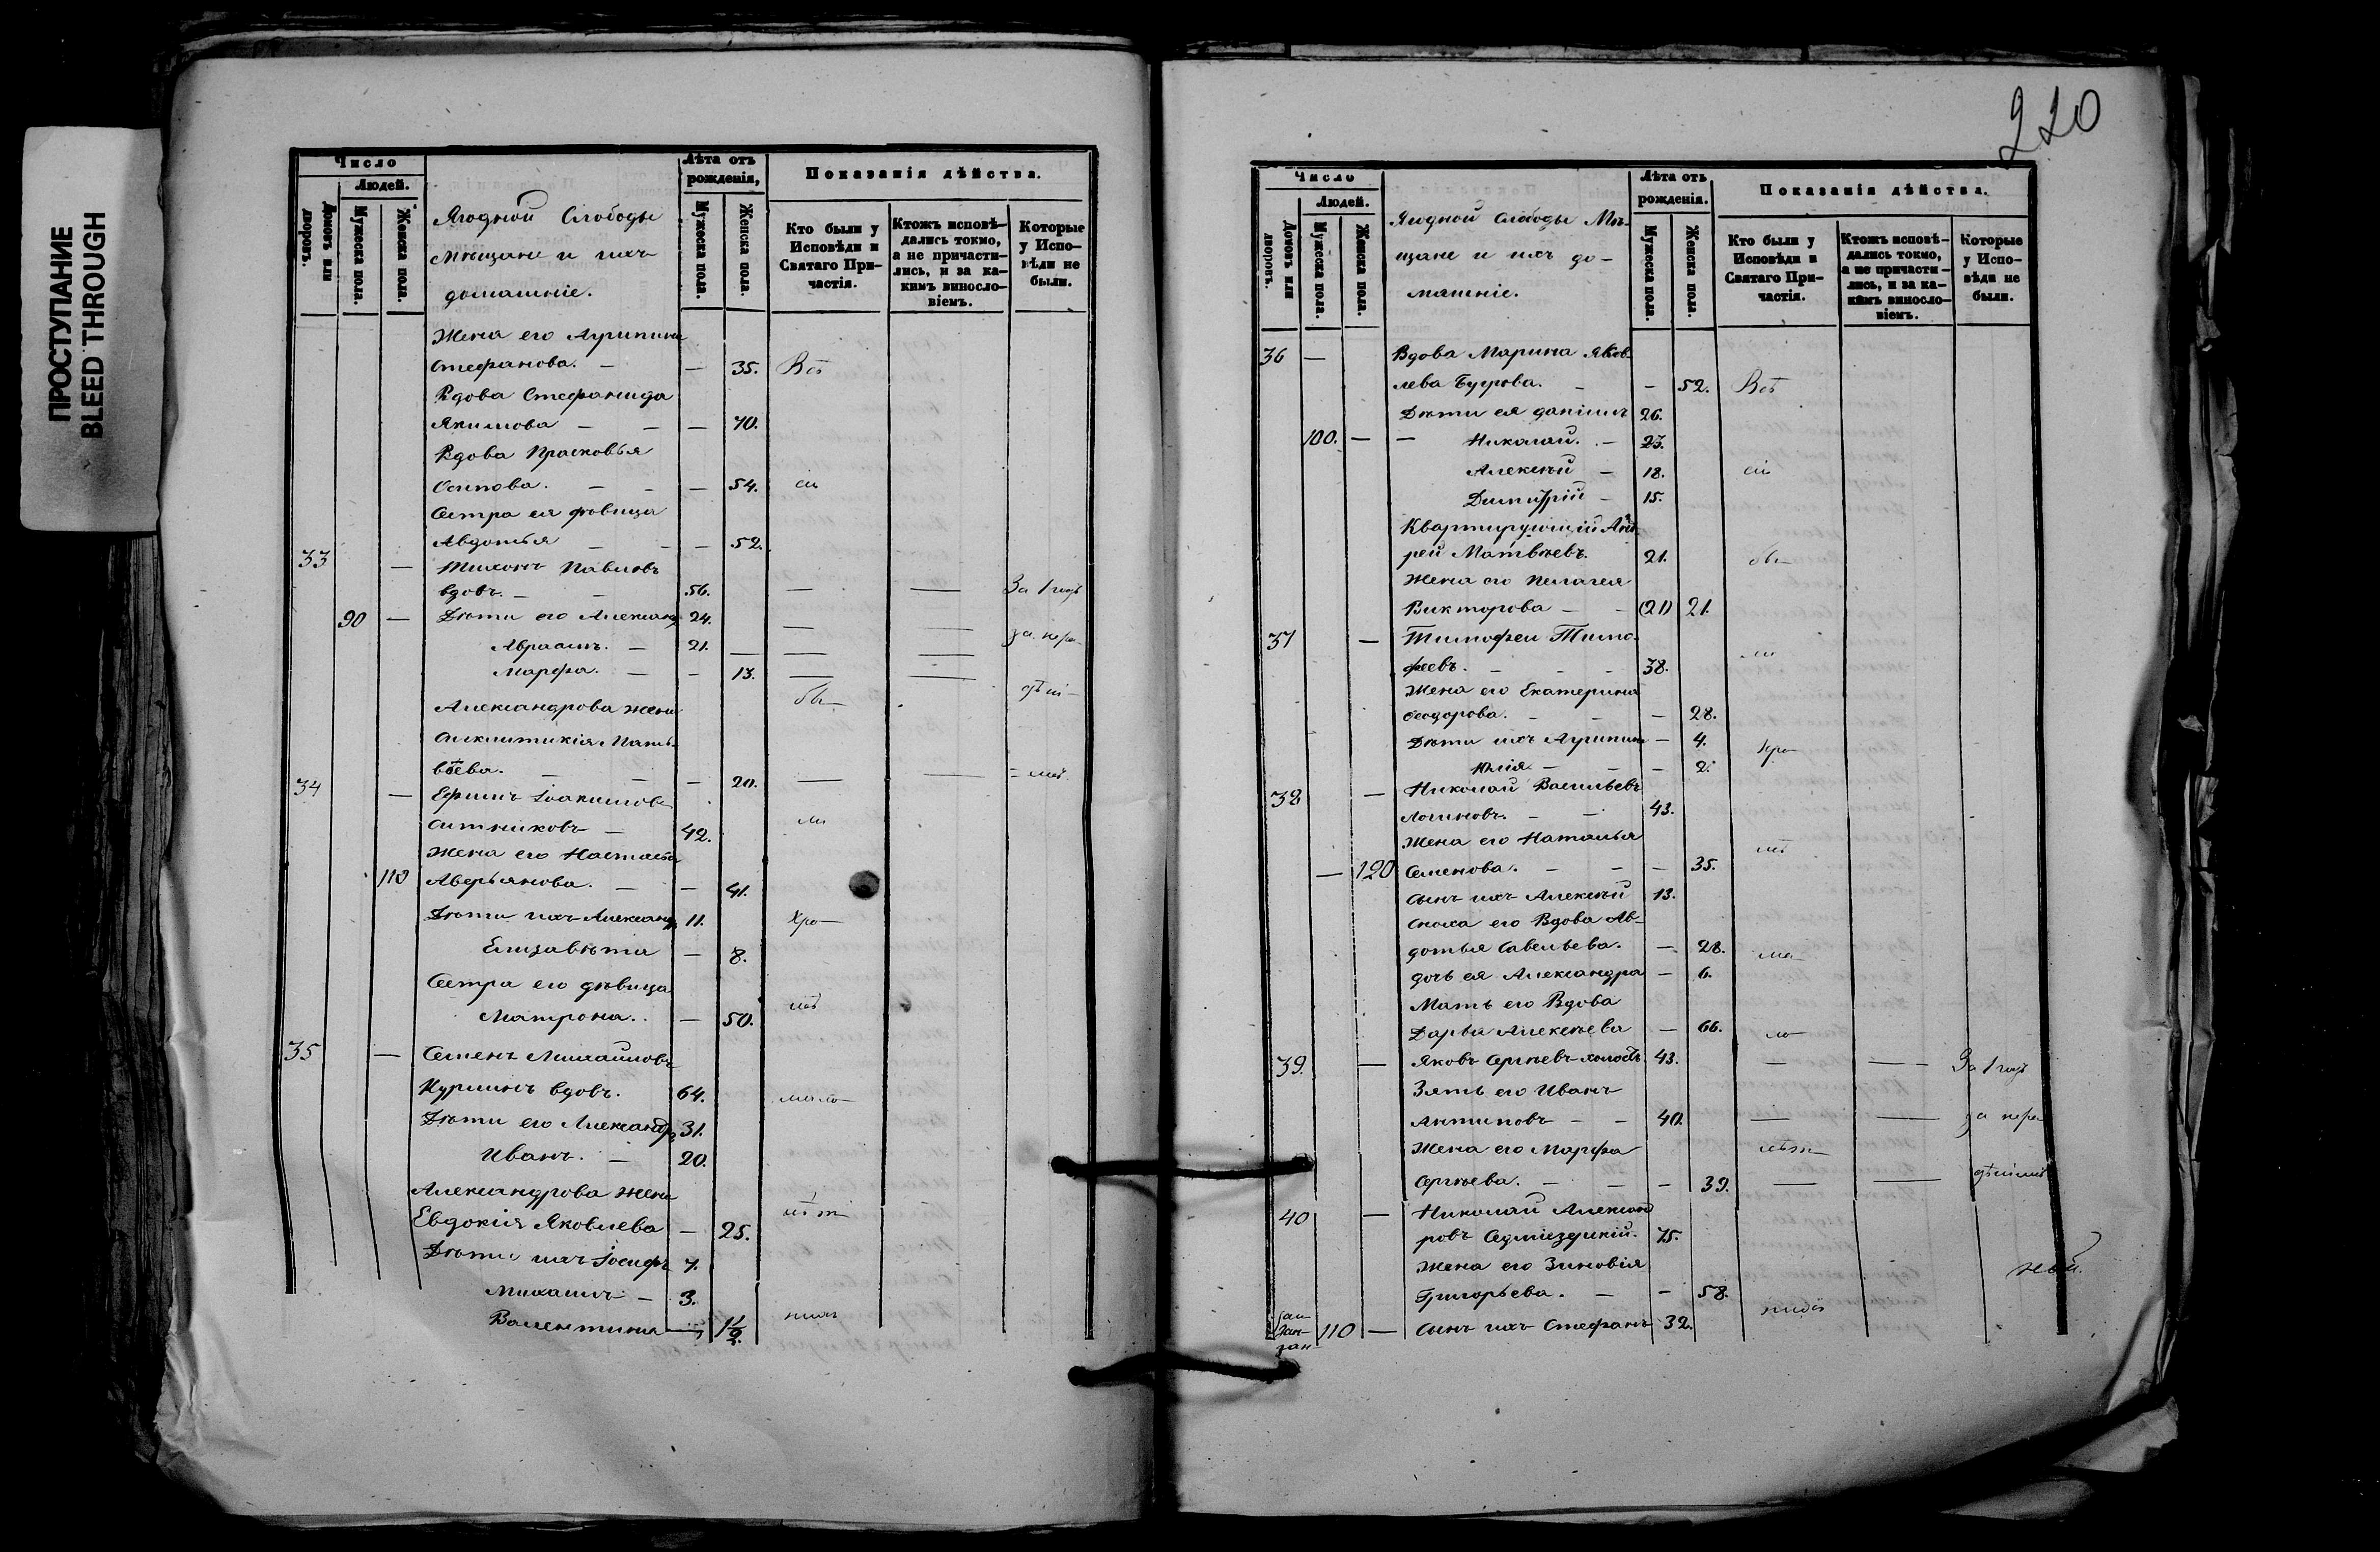 ПРОСТУПАНИЕ
BLEED THROUGH
Число
Людей.
Домовъ или дворовъ.
Мужеска пола.
Женска пола.
Ягодной Слободы
Мѣщане и ихъ
домашніе.
Лѣта отъ рожденія,
Мужеска пола.
Женска пола.
Показанія дѣйства.
Кто были у Исповѣди и Святаго Причастія.
Ктожъ исповѣдались токмо, а не причастились, и за какимъ винословіемъ.
Которые у Исповѣди не были.
Жена его Агрипина
Стефанова. — — 35. Всѣ
Вдова Стефанида
Якимова — — — 70.
Вдова Прасковья
Осипова. — — — 54. сіи
Сестра ея дѣвица
Авдотья — — — 52.
33 — Тихонъ Павловъ
вдовъ. — 56. — — За 1 годъ
90 — Дѣти его Александръ 24. — —
Авраамъ. — 21. — — — за нера-
Марфа. — — 13. — —
Александрова жена бы— дѣні-
Синклитикія Матв-
ѣева. — — — 20. — —
34 — Ефимъ Іоакимовъ
Ситниковъ — 42. ли
Жена его Настасья
110 Аверьянова. — — 41.
Дѣти ихъ Александръ 11.
Елизавета — 8.
Сестра его дѣвица
Матрона. — 50.
35 — Семенъ Михайловъ
Курминъ вдовъ. 64.
Дѣти его Александръ 31.
Иванъ. — 20.
Александрова жена
Евдокія Яковлева — 25.
Дѣти ихъ Іосифъ 7.
Михаилъ — 3.
Валентина — 1 1/2.
220
Число
Людей.
Домовъ или дворовъ.
Мужеска пола.
Женска пола.
Ягодной Слободы Мѣ-
щане и ихъ до-
машніе.
Лѣта отъ рожденія.
Мужеска пола.
Женска пола.
Показанія дѣйства.
Кто были у Исповѣди и Святаго Причастія.
Ктожъ исповѣдались токмо, а не причастились, и за какимъ винословіемъ.
Которые у Исповѣди не были.
36 — Вдова Марина Яков-
лева Бугрова. — — 52. Всѣ
Дѣти ея Даніилъ 26.
100. — — Николай. — 23.
Алексѣй — 18. сіи
Димитрій — 15.
Квартирующій Анд-
рей Матвѣевъ. 21. бы-
Жена его Пелагея
Викторова — — (21) 21.
37 — Тимофей Тимо-
феевъ. — — — 38. ли
Жена его Екатерина
Феодорова. — — — 28.
Дѣти ихъ Агрипина — 4.
Юлія — — — 2.
38 — Николай Васильевъ
Логиновъ. — — 43.
Жена его Наталья
— 120 Семенова. — — — 35.
Сынъ ихъ Алексѣй 13.
Сноха его Вдова Ав-
дотья Савельева. — 28.
дочь ея Александра — 6.
Мать его Вдова
Дарья Алексѣева — 66.
39. — Яковъ Сергѣевъ холостъ 43. — — За 1 годъ
Зять его Иванъ
Антиповъ — — 40. — — за нера
Жена его Марфа
Сергѣева. — — — 39. — —
40 — Николай Александ-
ровъ Седміезерскій. 75.
Жена его Зиновія
Григорьева. — — 58.
110 — Сынъ ихъ Стефанъ 32.